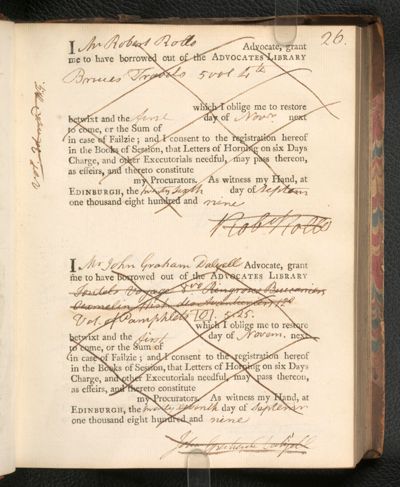 26.
I Mr Robert Rolls Advocate, grant
me to have borrowed out of the ADVOCATES LIBRARY
Bruces Travels 5 vol 4to
which I oblige me to restore
betwixt and the first day of Novr. next
to come, or the Sum of
in case of Failzie; and I consent to the registration hereof
in the Books of Session, that Letters of Horning on six Days
Charge, and other Executorials needful, may pass thereon,
as effeirs, and thereto constitute
my Procurators. As witness my Hand, at
EDINBURGH, the twenty sixth day of Septem
one thousand eight hundred and nine
Robt Rolls
I Mr John Graham Dalyell Advocate, grant
me to have borrowed out of the ADVOCATES LIBRARY
Voyage Buccaniers
Vol. of Pamphlets 5.25.
which I oblige me to restore
betwixt and the first day of Novem. next
to come, or the Sum of
in case of Failzie; and I consent to the registration hereof
in the Books of Session, that Letters of Horning on six Days
Charge, and other Executorials needful, may pass thereon,
as effeirs, and thereto constitute
my Procurators. As witness my Hand, at
EDINBURGH, the twenty seventh day of Septemr
one thousand eight hundred and nine
John Graham Dalyell